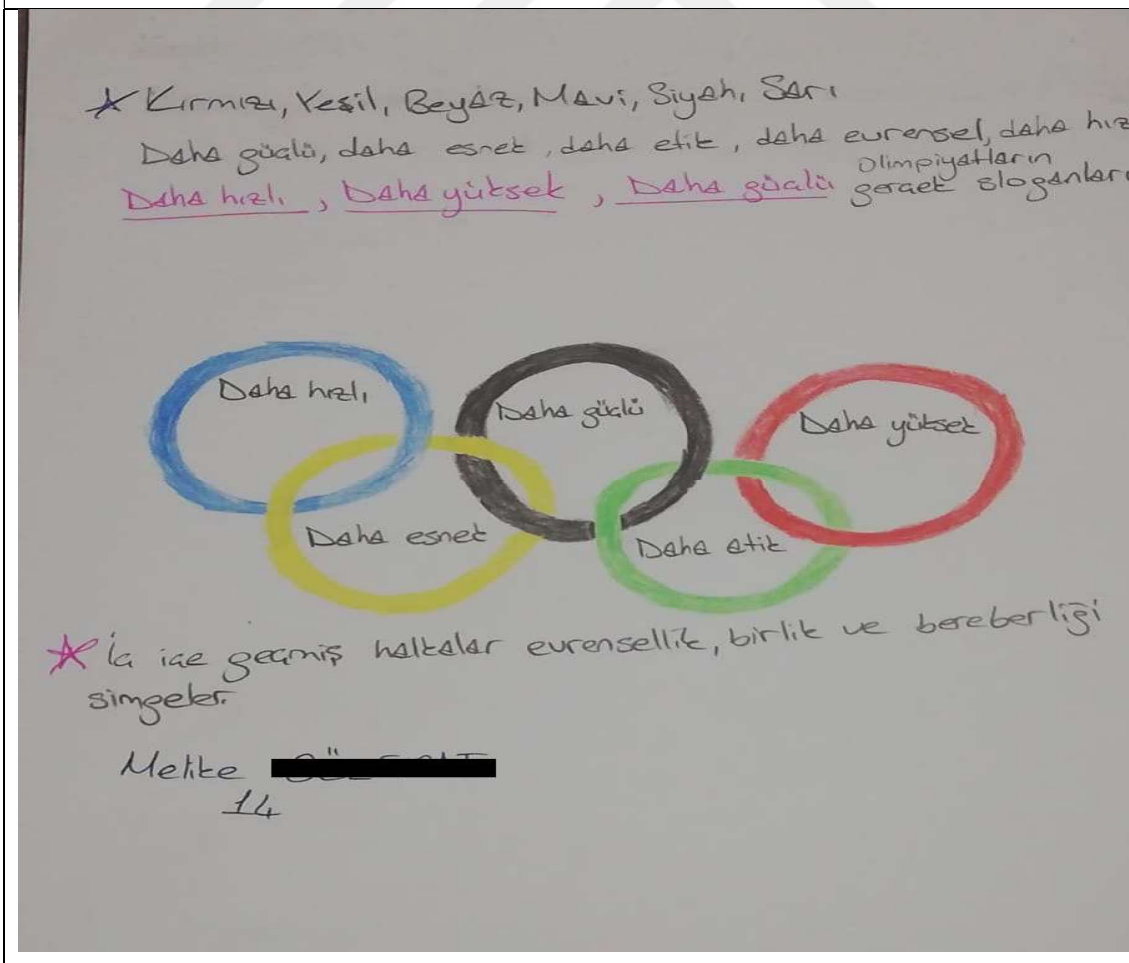 Kırmızı, Yeşil, Beyaz, Mavi, Siyah, Sarı
Daha güçlü, daha esnek, daha etik, daha evrensel, daha hız
Olimpiyatların
Daha hızlı, Daha yüksek, Daha güçlü gerçek sloganları
Daha hızlı
Daha güçlü
Daha yüksek
Daha esnek
Daha etik
İç içe geçmiş halkalar evrensellik, birlik ve bereberliği
simgeler.
Melike
14